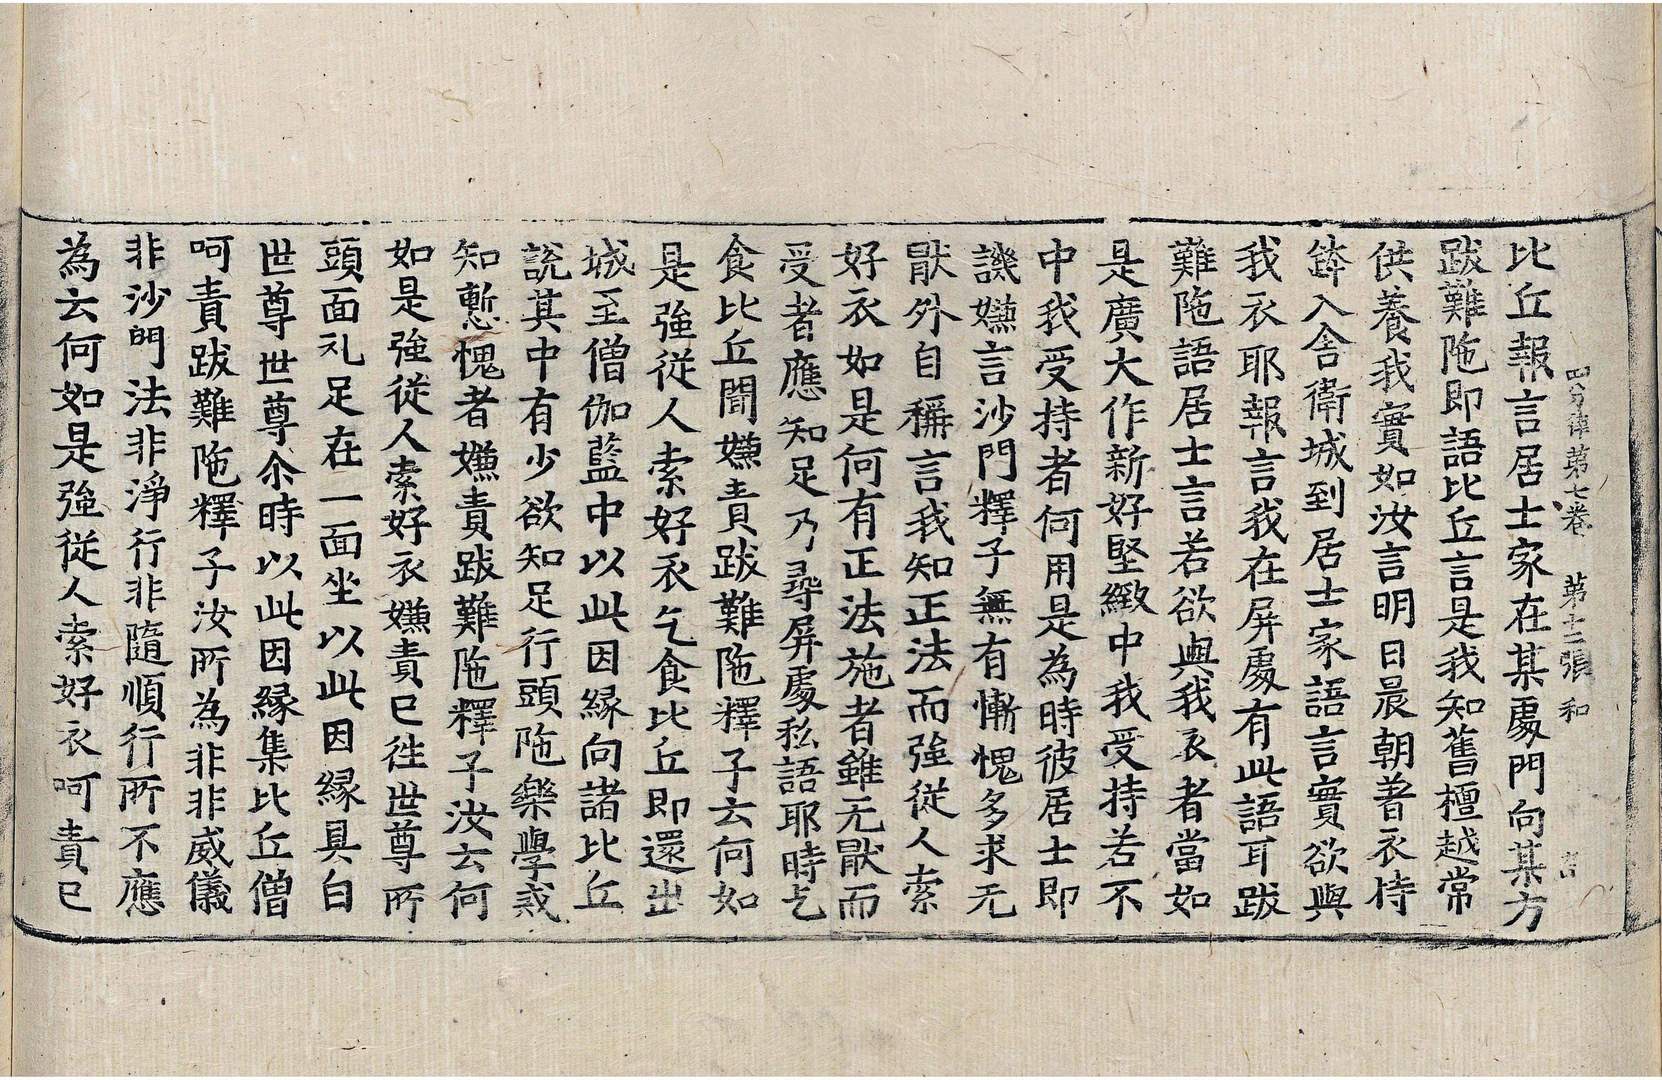 四分律第七卷 第十二張 和
比丘報言居士家在某處門向某方
跋難陁即語比丘言是我知舊檀越常
供養我實如汝言明日晨朝著衣持
鉢入舍衛城到居士家語言實欲與
我衣耶報言我在屏處有此語耳跋
難陁語居士言若欲與我衣者當如
是廣大作新好堅緻中我受持若不
中我受持者何用是為時彼居士即
譏嫌言沙門釋子無有慚愧多求无
猒外自稱言我知正法而強從人索
好衣如是何有正法施者雖无猒而
受者應知足乃尋屏處私語耶時乞
食比丘聞嫌責跋難陁釋子云何如
是強從人索好衣乞食比丘即還出
城至僧伽藍中以此因緣向諸比丘
說其中有少欲知足行頭陁樂學戒
知慙愧者嫌責跋難陁釋子汝云何
如是強從人索好衣嫌責已往世尊所
頭面礼足在一面坐以此因緣具白
世尊世尊尒時以此因緣集比丘僧
呵責跋難陁釋子汝所為非非威儀
非沙門法非淨行非隨順行所不應
為云何如是強從人索好衣呵責已